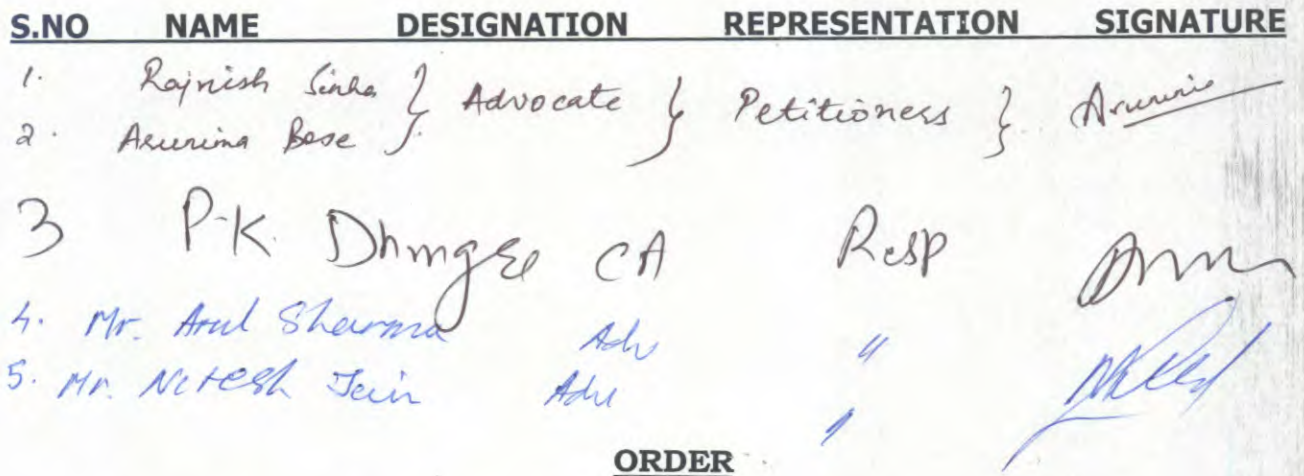 S.NO NAME DESIGNATION REPRESENTATION SIGNATURE
1. Rajnish Sinha } Advocate } Petitioners }
2. Arunima Bose
3 P.K. CA Resp
4. Mr. Sharma Adv "
5. Mr. Nitesh Jain Adv "
ORDER